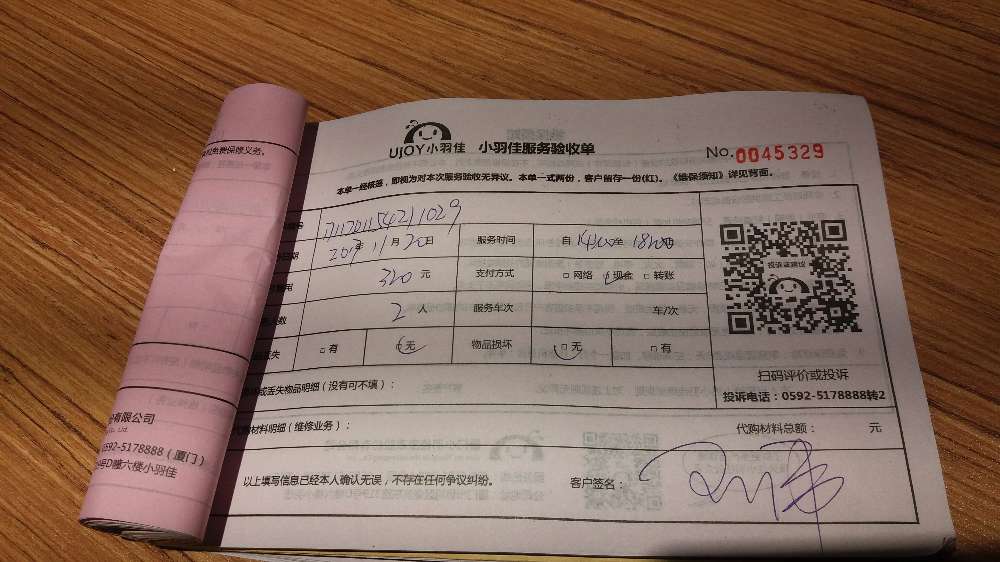 祝免费保修义务。
UJOY小羽佳 小羽佳服务验收单 No.0045329
本单一经核准，即视为对本次服务验收无异议。本单一式两份，客户留存一份(红)。《维保须知》详见背面。
日期 2017年 11月 20日 服务时间 自 14:00 至 18:00
320 元 支付方式 □网络 □现金 □转账
人数 2 人 服务车次 车/次
丢失 □有 □无 物品损坏 □无 □有
投诉或建议
扫码评价或投诉
投诉电话：0592-5178888转2
或丢失物品明细（没有可不填）：
代购材料明细（维修业务）： 代购材料总额： 元
以上填写信息已经本人确认无误，不存在任何争议纠纷。 客户签名：
有限公司
0592-5178888（厦门）
号D幢六楼小羽佳